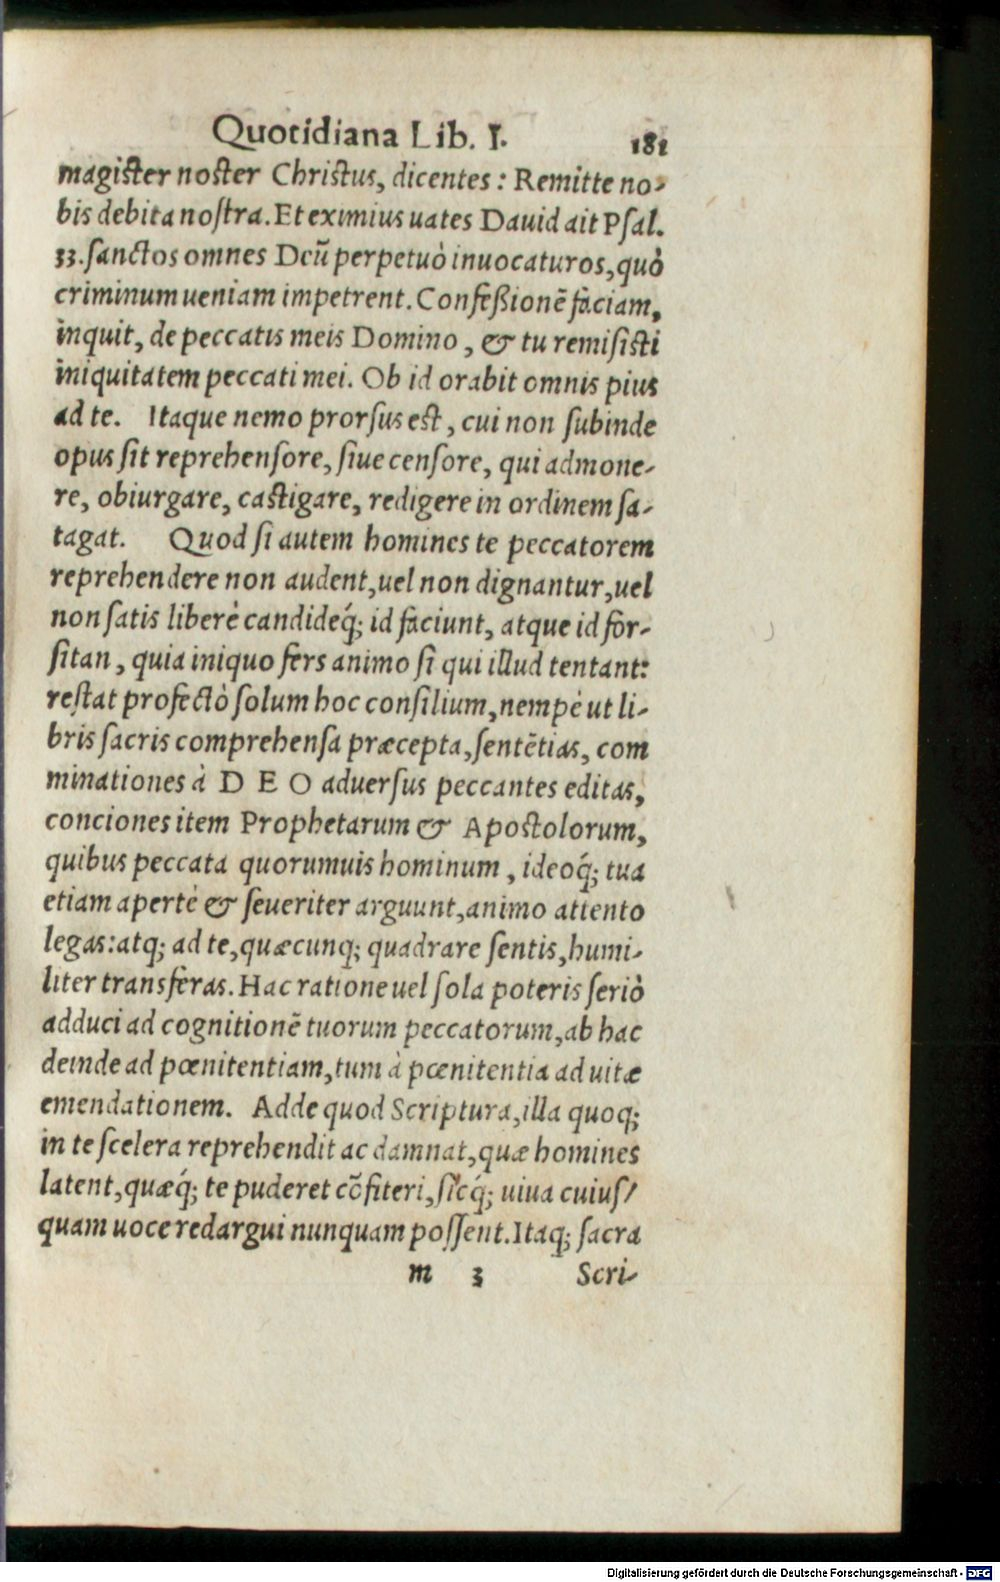 Quotidiana Lib. I. 181
magister noster Christus, dicentes: Remitte no-
bis debita nostra. Et eximius uates Dauid ait Psal.
33. sanctos omnes Deũ perpetuò inuocaturos, quò
criminum ueniam impetrent. Confeßionẽ faciam,
inquit, de peccatis meis Domino, & tu remisisti
iniquitatem peccati mei. Ob id orabit omnis pius
ad te. Itaque nemo prorsus est, cui non subinde
opus sit reprehensore, siue censore, qui admone-
re, obiurgare, castigare, redigere in ordinem sa-
tagat. Quod si autem homines te peccatorem
reprehendere non audent, uel non dignantur, uel
non satis liberè candideq́; id faciunt, atque id for-
sitan, quia iniquo fers animo si qui illud tentant:
restat profectò solum hoc consilium, nempè ut li-
bris sacris comprehensa præcepta, sentẽtias, com
minationes à D E O aduersus peccantes editas,
conciones item Prophetarum & Apostolorum,
quibus peccata quorumuis hominum, ideoq́; tua
etiam apertè & seueriter arguunt, animo attento
legas: atq; ad te, quæcunq; quadrare sentis, humi-
liter transferas. Hac ratione uel sola poteris seriò
adduci ad cognitionẽ tuorum peccatorum, ab hac
deinde ad pœnitentiam, tum à pœnitentia ad uitæ
emendationem. Adde quod Scriptura, illa quoq;
in te scelera reprehendit ac damnat, quæ homines
latent, quæq́; te puderet cõfiteri, sicq́; uiua cuius/
quam uoce redargui nunquam possent. Itaq; sacra
m 3 Scri-
Digitalisierung gefördert durch die Deutsche Forschungsgemeinschaft - DFG